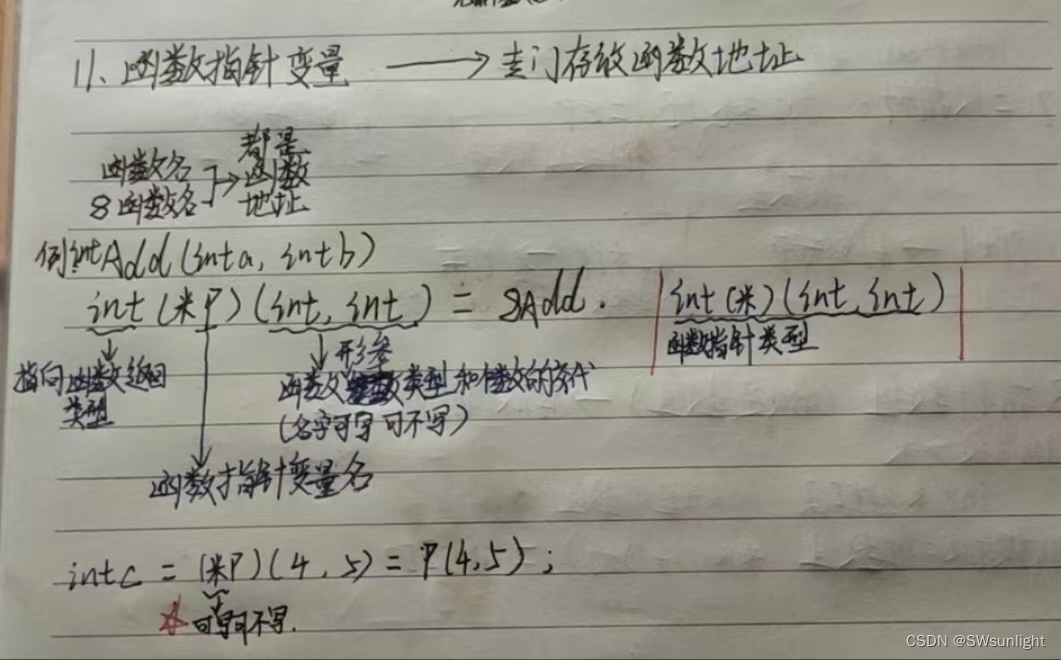 11、函数指针变量 ——→ 专门存放函数地址
函数名
&函数名
都是
函数
地址
例int Add(int a, int b)
int (*P)(int, int) = &Add.
int(*)(int, int)
函数指针类型
指向函数返回
类型
形参
函数类型和个数的交代
(名字可写可不写)
函数指针变量名
int c = (*P)(4, 5) = P(4,5);
☆可写可不写.
CSDN @SWsunlight